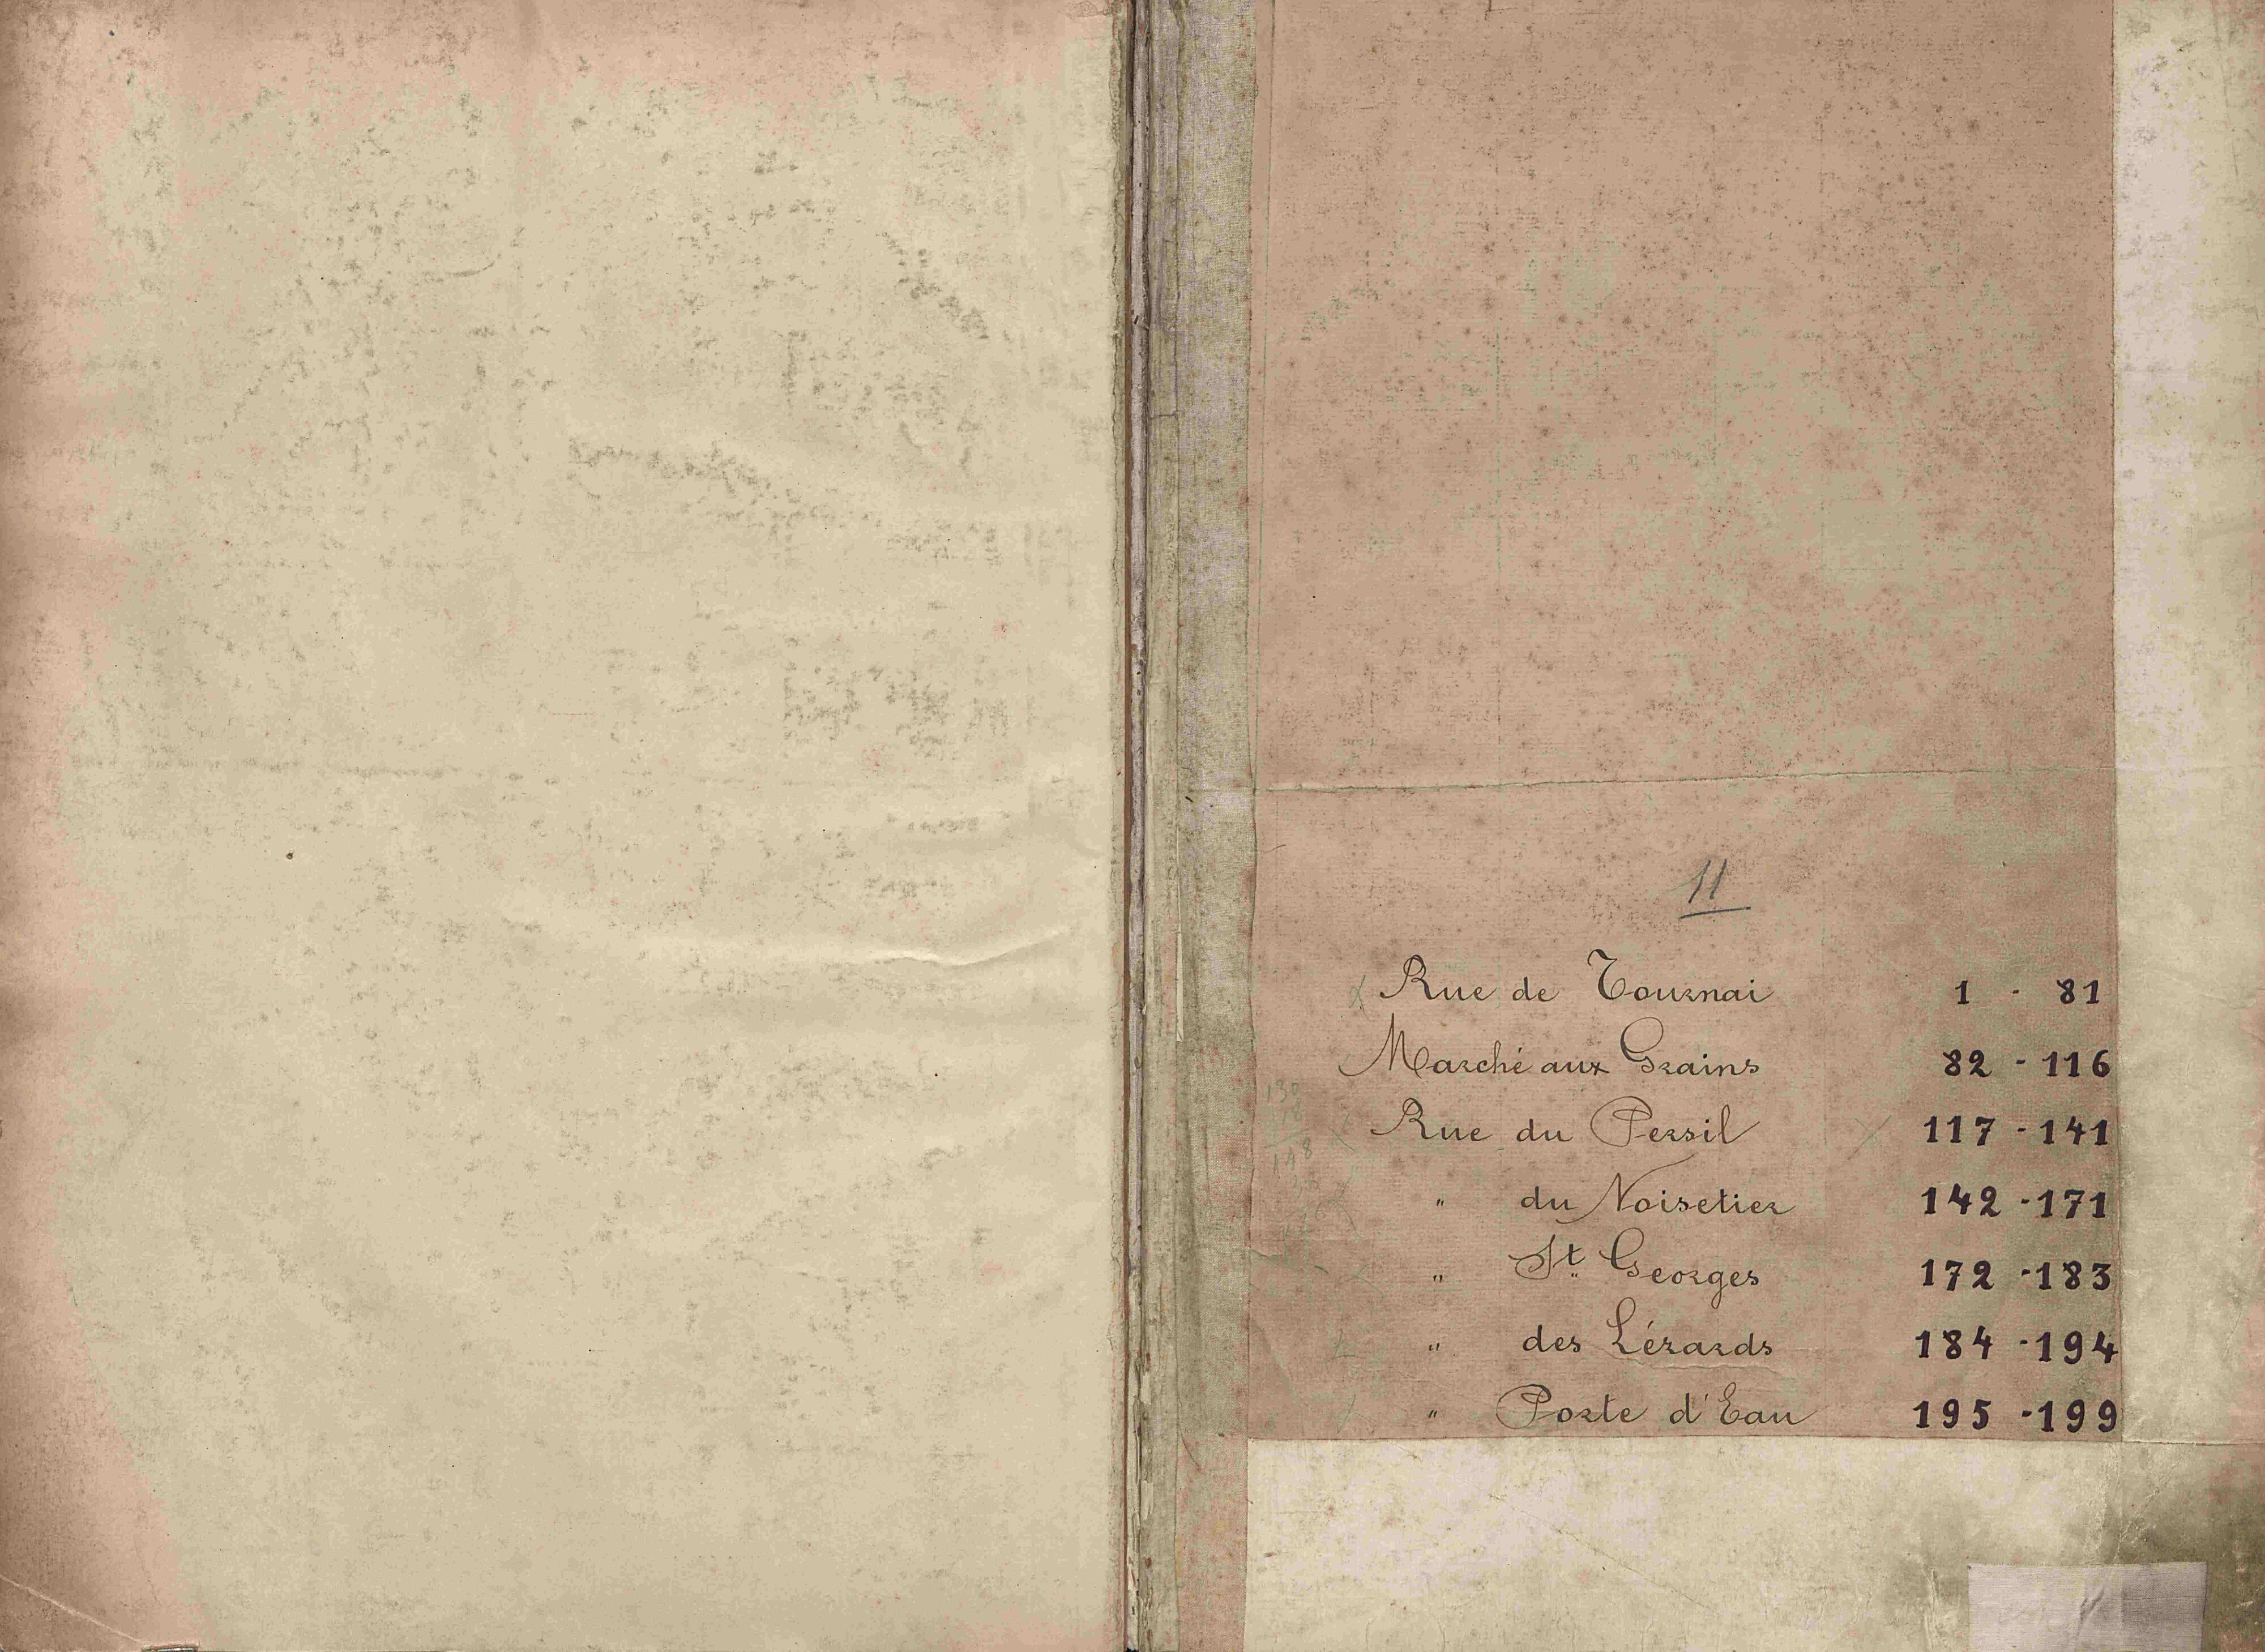 11
Rue de Tournai 1 - 81
Marché aux Grains 82 - 116
Rue du Persil 117 - 141
" du Noisetier 142 - 171
" St. Georges 172 - 183
" des Lézards 184 - 194
" Porte d'Eau 195 - 199